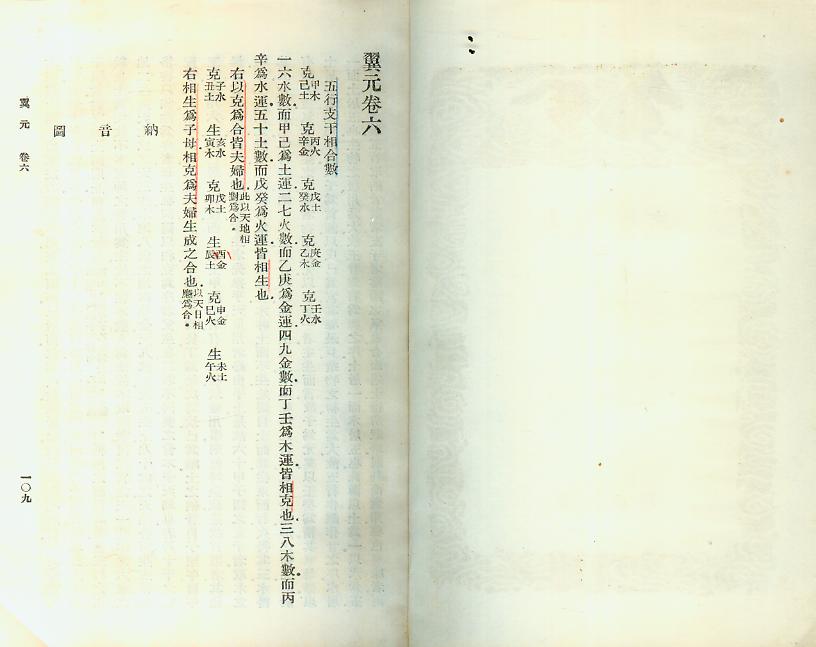 翼元卷六
五行支干相合數
克甲木己土 克丙火辛金 克戊土癸水 克庚金乙木 克壬水丁火
一六水數而甲己爲土運二七火數而乙庚爲金運四九金數而丁壬爲木運皆相克也三八木數而丙
辛爲水運五十土數而戊癸爲火運皆相生也
右以克爲合皆夫婦也此以天地相對爲合。
克子水丑土 生亥水寅木 克戌土卯木 生酉金辰土 克申金巳火 生未土午火
右相生爲子母相克爲夫婦生成之合也以天日相應爲合。
納音圖
翼元 卷六
一〇九